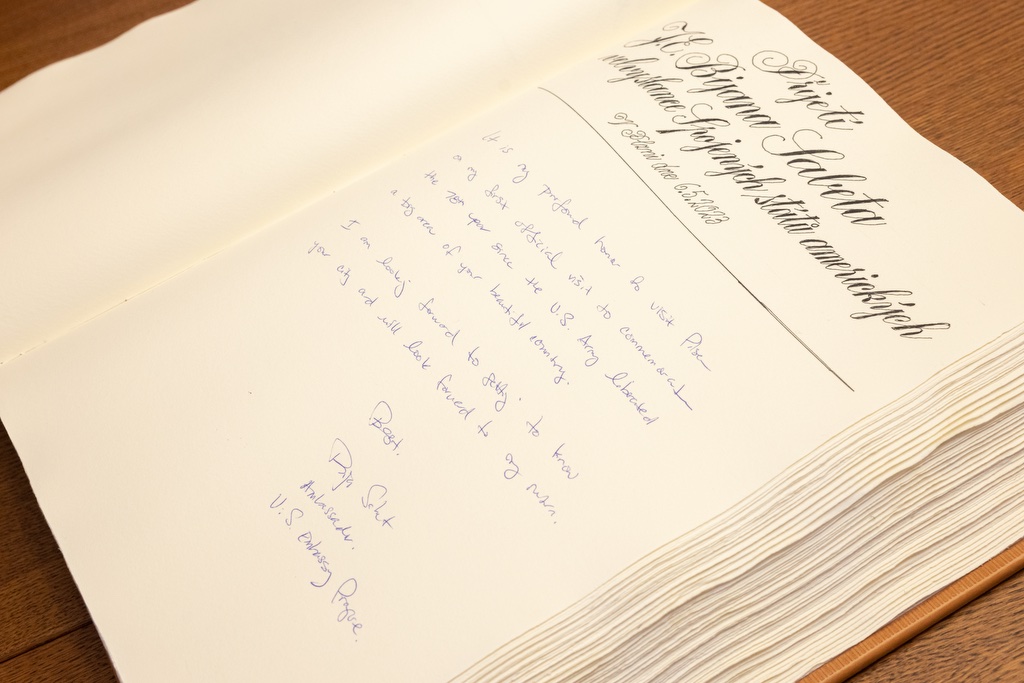 Přijetí
J.E. Bijana Sabeta
velvyslance Spojených států amerických
v Plzni dne 6.5.2023
It is my profound honor to visit Pilsen
on my first official visit to commemorate
the 78th year since the U.S. Army liberated
a big area of your beautiful country.
I am looking forward to getting to know
your city and will look forward to my return.
Best,
Bijan Sabet
Ambassador.
U.S. Embassy Prague.